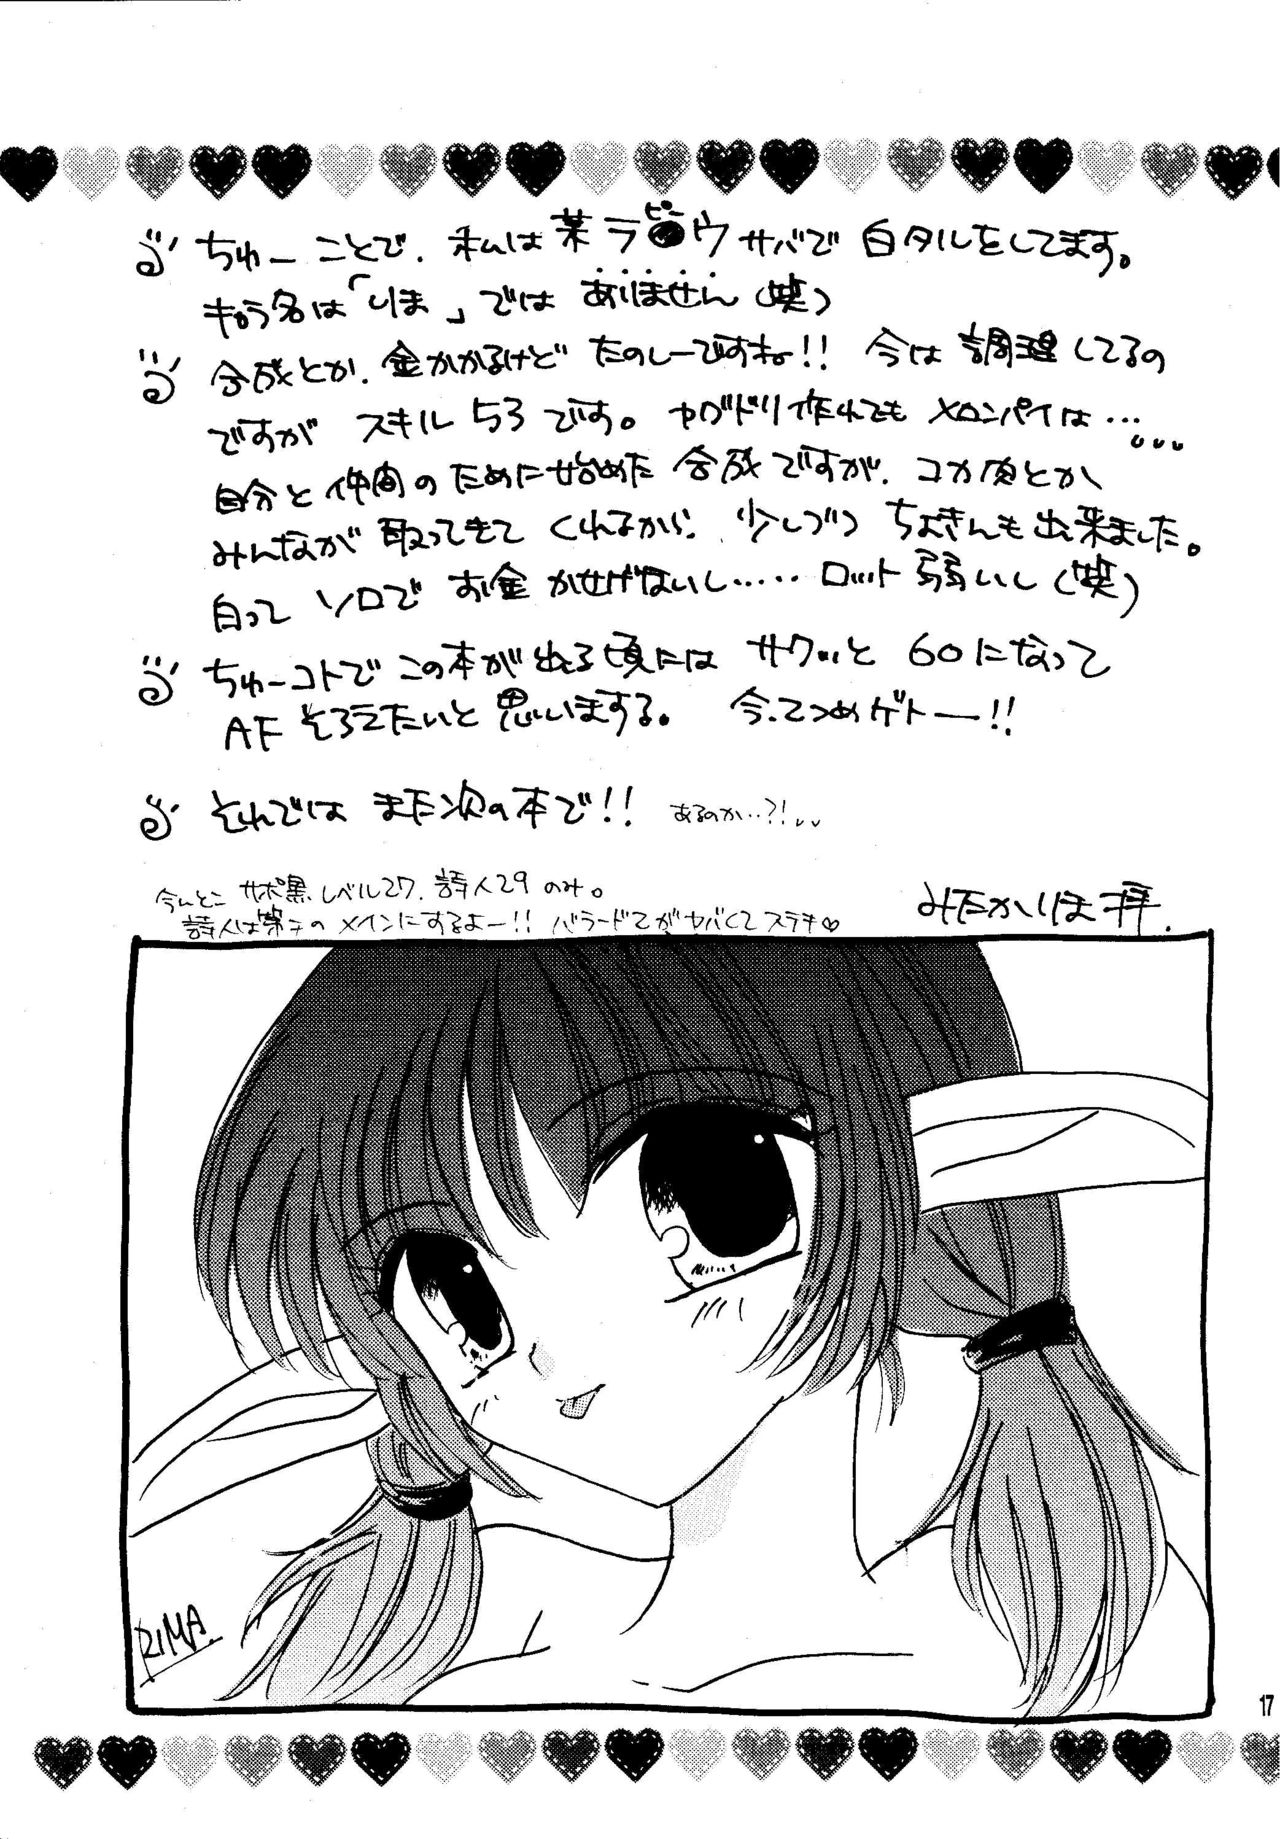 ちゅーことで、私は某ラ●ウサバで白タルをしてます。
ピー
キャラ名は「りま」ではありません(笑)
合成とか、金かかるけどたのしーですね!! 今は調理してるの
ですがスキル53です。ヤグドリ作れてもメロンパイは…
自分と仲間のために始めた合成ですが、コカ肉とか
みんなが取ってきてくれるから、少しづつちょきんも出来ました。
白ってソロでお金かせげないし…‥ロット弱いし(笑)
ちゅーコトでこの本が出る頃にはサクッと60になって
AFそろえたいと思いまする。 今、てつめゲトー!!
それではまた次の本で!! あるのか‥?!
今んとこサポ黒レベル27、詩人29のみ。
詩人は第二のメインにするよー!! バラードⅡがヤバくてステキ♡
みたかりま拝.
RIMA.
17